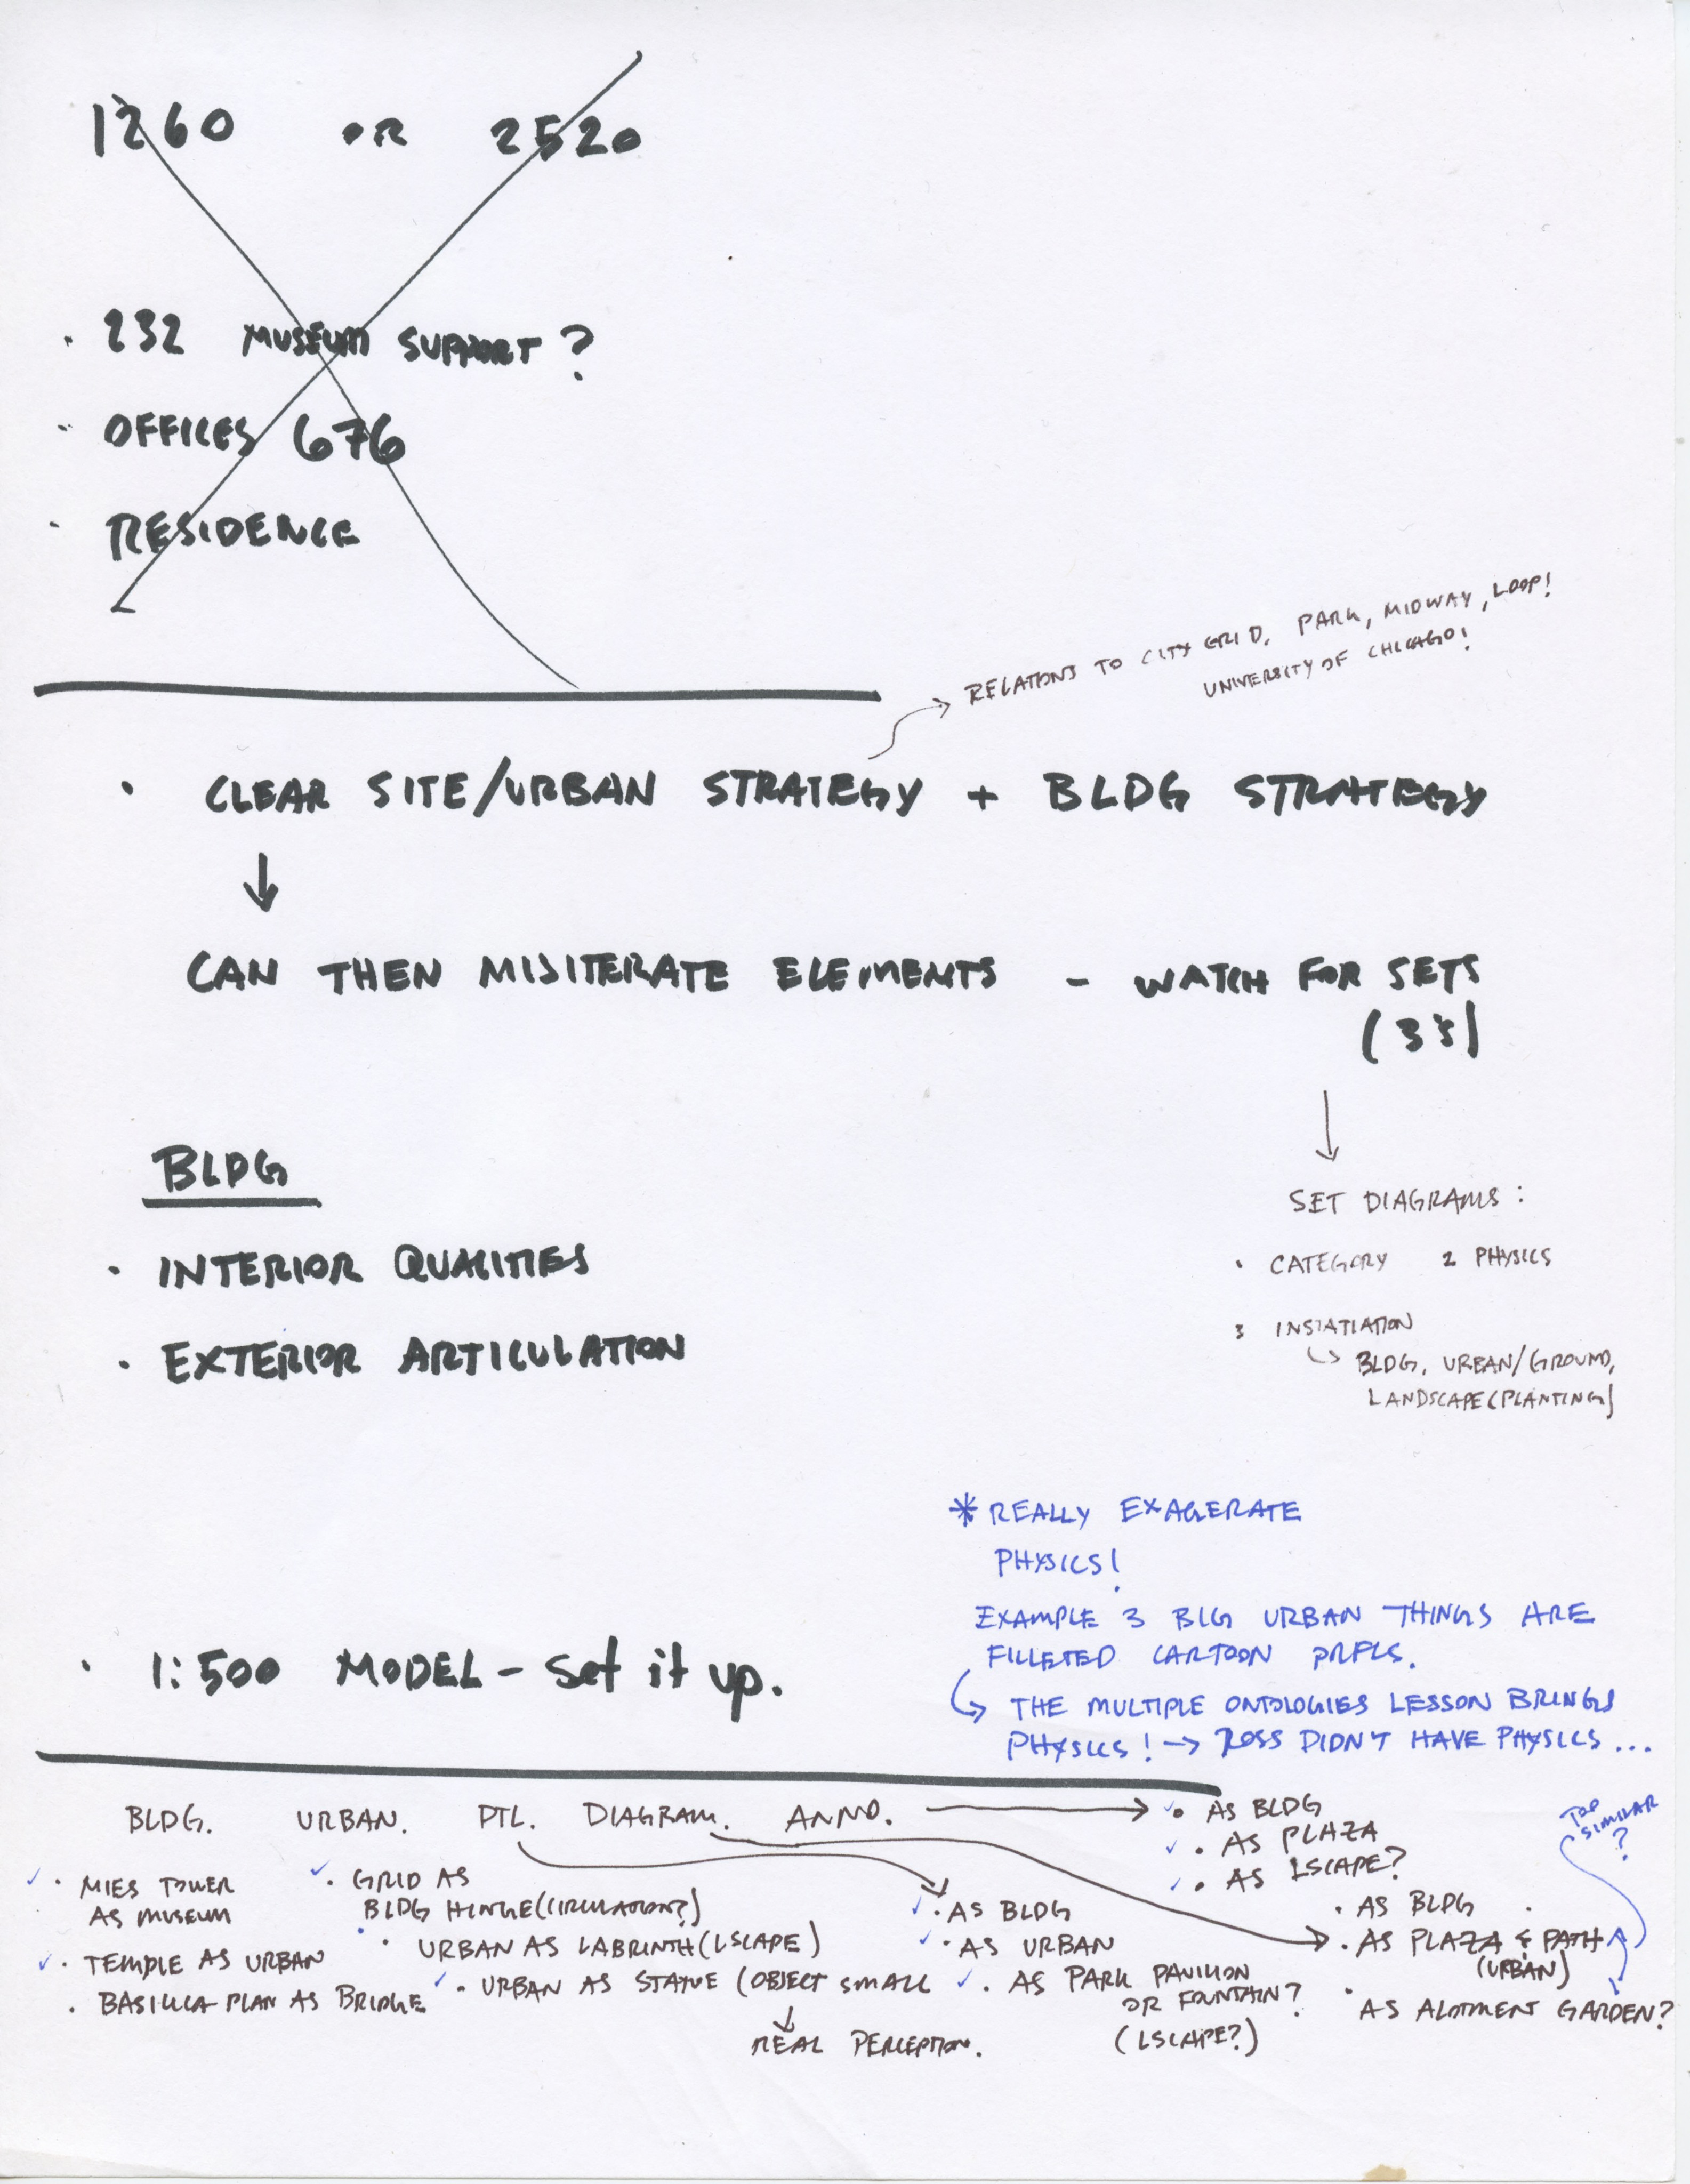 1260 OR 2520
· 232 MUSEUM SUPPORT?
· OFFICES 676
· RESIDENCE
RELATIONS TO CITY GRID, PARK, MIDWAY, LOOP!
UNIVERSITY OF CHICAGO!
· CLEAR SITE/URBAN STRATEGY + BLDG STRATEGY
↓
CAN THEN MISITERATE ELEMENTS - WATCH FOR SETS
(3's)
BLDG
· INTERIOR QUALITIES
· EXTERIOR ARTICULATION
SET DIAGRAMS:
· CATEGORY 2 PHYSICS
3 INSTATIATION
BLDG, URBAN/GROUND,
LANDSCAPE (PLANTING)
* REALLY EXAGERATE
PHYSICS!
EXAMPLE 3 BIG URBAN THINGS ARE
FILLETED CARTOON PRFLS.
THE MULTIPLE ONTOLOGIES LESSON BRINGS
PHYSICS! → ROSS DIDN'T HAVE PHYSICS ...
· 1:500 MODEL - set it up.
BLDG. URBAN. DTL. DIAGRAM. ANNO.
· MIES TOWER
AS MUSEUM
· TEMPLE AS URBAN
· BASILICA PLAN AS BRIDGE
· GRID AS
BLDG HINGE (CIRCULATION?)
· URBAN AS LABRINTH (LSCAPE)
· URBAN AS STATUE (OBJECT SMALL
REAL PERCEPTION.
· AS BLDG
· AS URBAN
· AS PARK PAVILION
OR FOUNTAIN?
(LSCAPE?)
· AS BLDG
· AS PLAZA
· AS LSCAPE?
· AS BLDG
· AS PLAZA & PATH
(URBAN)
· AS ALOTMENT GARDEN?
TOO
SIMILAR
?